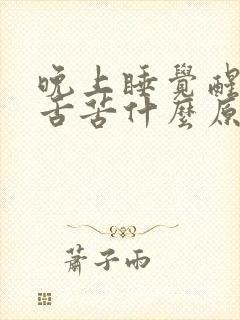 晚上睡覺醒
舌苦什麼原
蕭子雨